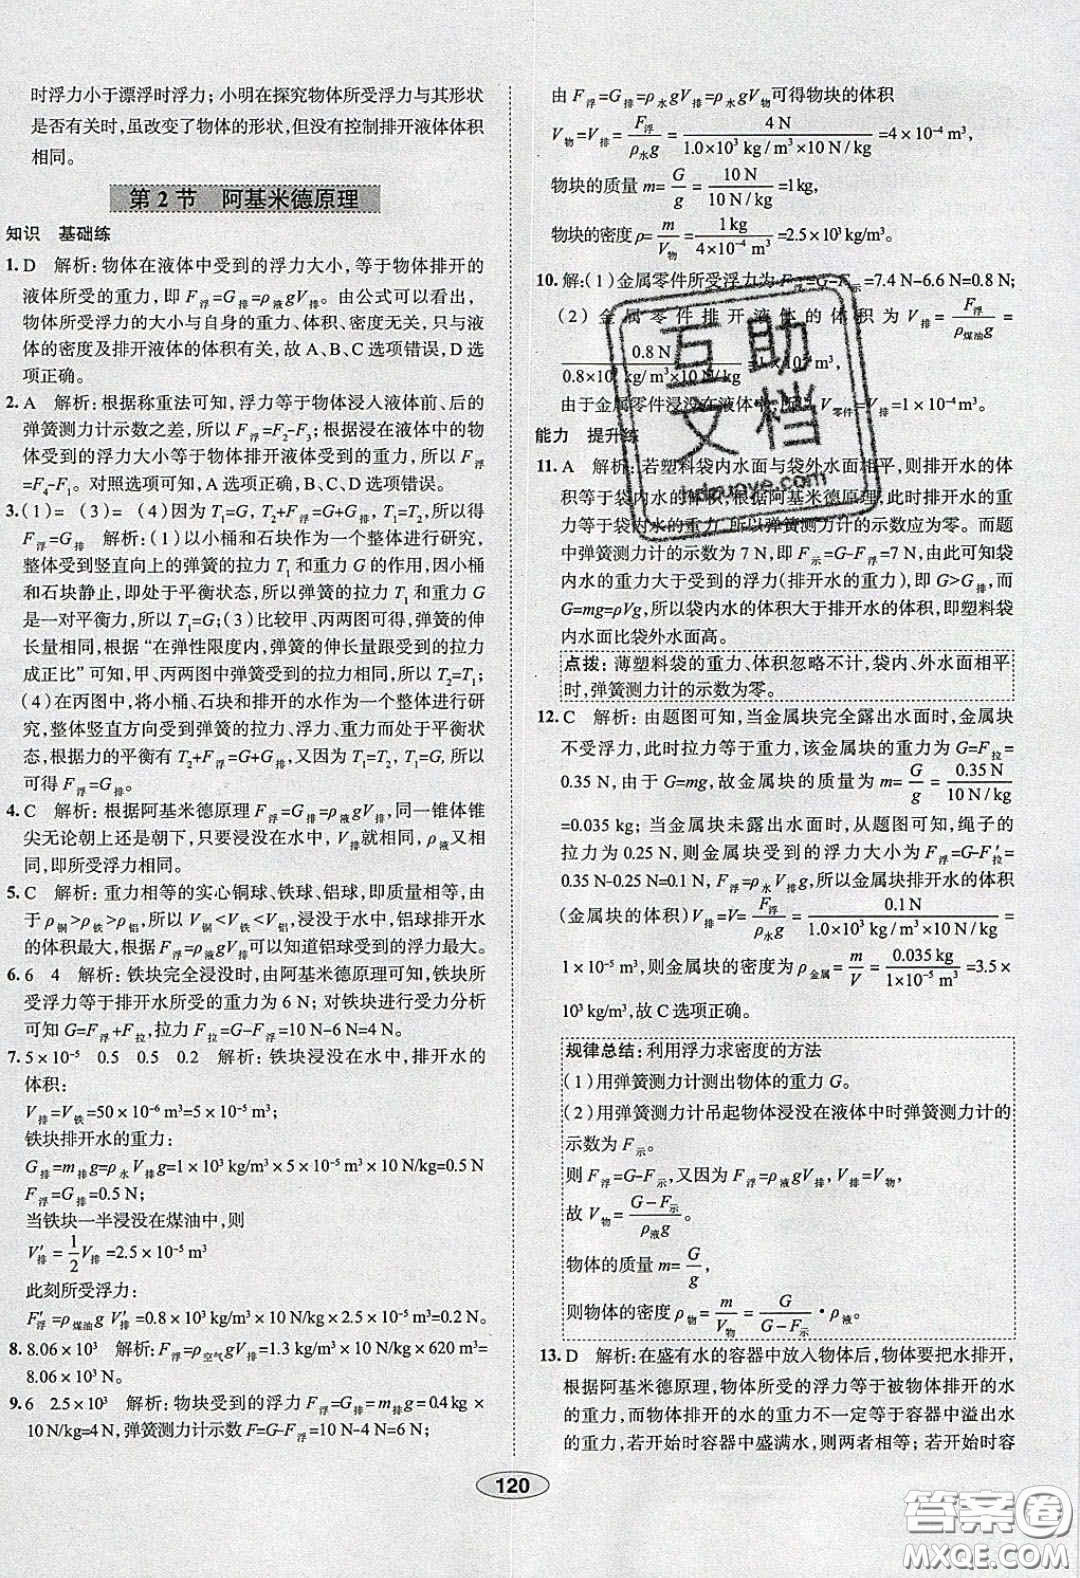 时浮力小于漂浮时浮力；小明在探究物体所受浮力与其形状
是否有关时，虽改变了物体的形状，但没有控制排开液体体积
相同。
第 2 节　阿基米德原理
知识　基础练
1. D　解析：物体在液体中受到的浮力大小，等于物体排开的
液体所受的重力，即 F浮=G排=ρ液gV排。由公式可以看出，
物体所受浮力的大小与自身的重力、体积、密度无关，只与液
体的密度及排开液体的体积有关，故 A、B、C 选项错误，D 选
项正确。
2. A　解析：根据称重法可知，浮力等于物体浸入液体前、后的
弹簧测力计示数之差，所以 F浮=F2-F3；根据浸在液体中的物
体受到的浮力大小等于物体排开液体受到的重力，所以 F浮
=F4-F1。对照选项可知，A 组合正确，B、C、D 组合错误。
3. (1)=　(3)=　(4)因为 T1=G，T2+F浮=G+G排，T1=T2，所以得
F浮=G排　解析：(1)以小桶和石块作为一个整体进行研究，
整体受到竖直向上的弹簧的拉力 T1 和重力 G 的作用，因小桶
和石块静止，即处于平衡状态，所以弹簧的拉力 T1 和重力 G
的大小关系为 T1=G；(3)比较甲、丙两图中弹簧可知，弹簧的伸
长量相同，根据“在弹性限度内，弹簧的伸长量跟受到的拉力
成正比”可知，甲、丙两图中弹簧受到的拉力相同，即 T2=T1；
(4)在丙图中，将小桶、石块和排开的水作为一个整体进行研
究，整体竖直方向上受到弹簧的拉力、浮力、重力而处于平衡状
态，根据力的平衡有 T2+F浮=G+G排，又因为 T1=G，T1=T2，所以
可得 F浮=G排。
4. C　解析：根据阿基米德原理 F浮=G排=ρ液gV排，同一锥体锥
尖无论朝上还是朝下，只要浸没在水中，V排就相同，ρ液又相
同，即所受浮力相同。
5. C　解析：重力相等的实心铜球、铁球、铝球，即质量相等，由
于 ρ铜>ρ铁>ρ铝，所以 V铜<V铁<V铝，浸没于水中，铝球排开水
的体积最大，根据 F浮=ρ液gV排可以知道铝球受到的浮力最大。
6. 6　4　解析：铁块完全浸没时，由阿基米德原理可知，铁块所
受浮力等于排开水所受的重力为 6 N；对铁块进行受力分析
可知 G=F浮+F拉，拉力 F拉=G-F浮=10 N-6 N=4 N。
7. 5×10-5　0.5　0.5　0.2　解析：铁块浸没在水中，排开水的
体积：
V排=V铁=50×10-6 m3=5×10-5 m3；
铁块排开水的重力：
G排=m排g=ρ水V排g=1×103 kg/m3×5×10-5 m3×10 N/kg=0.5 N
F浮=G排=0.5 N；
当铁块一半浸没在煤油中，则
V′排=1/2V排=2.5×10-5 m3
此刻所受浮力：
F′浮=ρ煤油g V′排=0.8×103 kg/m3×10 N/kg×2.5×10-5 m3=0.2 N。
8. 8.06×103　解析：F浮=ρ空气gV排=1.3 kg/m3×10 N/kg×620 m3=
8.06×103 N。
9. 6　2.5×103　解析：物块受到的浮力 F浮=G排=m排g=0.4 kg×
10 N/kg=4 N，弹簧测力计示数 F=G-F浮=10 N-4 N=6 N；
由 F浮=G排=ρ水gV排=ρ水gV物可得物块的体积
V物=V排=F浮/ρ水g=4 N/1.0×103 kg/m3×10 N/kg=4×10-4 m3，
物块的质量 m=G/g=10 N/10 N/kg=1kg，
物块的密度 ρ=m/V物=1 kg/4×10-4 m3=2.5×103 kg/m3。
10. 解：(1)金属零件所受浮力为 F浮=G-F示=7.4 N-6.6 N=0.8 N；
(2) 金属零件排开液体的体积为 V排=F浮/ρ煤油g=
0.8 N/0.8×103 kg/m3×10 N/kg=1×10-4 m3，
由于金属零件浸没在液体中，所以 V零件=V排=1×10-4 m3。
能力　提升练
11. A　解析：若塑料袋内水面与袋外水面相平，则排开水的体
积等于袋内水的体积，根据阿基米德原理，此时排开水的重
力等于袋内水的重力，所以弹簧测力计的示数应为零。而题
中弹簧测力计的示数为 7 N，即 F示=G-F浮=7 N，由此可知袋
内水的重力大于受到的浮力（排开水的重力），即 G>G排，而
G=mg=ρVg，所以袋内水的体积大于排开水的体积，即塑料袋
内水面比袋外水面高。
点拨：薄塑料袋的重力、体积忽略不计，袋内、外水面相平
时，弹簧测力计的示数为零。
12. C　解析：由题图可知，当金属块完全露出水面时，金属块
不受浮力，此时拉力等于重力，该金属块的重力为 G=F拉=
0.35 N，由于 G=mg，故金属块的质量为 m=G/g=0.35 N/10 N/kg
=0.035 kg；当金属块未露出水面时，从题图可知，绳子的
拉力为 0.25 N，则金属块受到的浮力大小为 F浮=G-F′拉=
0.35 N-0.25 N=0.1 N，F浮=ρ水V排g，则金属块排开水的体积
(金属块的体积) V排=V=F浮/ρ水g=0.1 N/1.0×103 kg/m3×10 N/kg=
1×10-5 m3，则金属块的密度 ρ金属=m/V=0.035 kg/1×10-5 m3=3.5×
103 kg/m3，故 C 选项正确。
规律总结：利用浮力求密度的方法
(1)用弹簧测力计测出物体的重力 G。
(2)用弹簧测力计吊起物体浸没在液体中时弹簧测力计的
示数为 F示。
则 F浮=G-F示，又因为 F浮=ρ液gV排，V排=V物，
故 V物=G-F示/ρ液g。
物体的质量 m=G/g，
则物体的密度 ρ物=m/V物=G/G-F示·ρ液。
13. D　解析：在盛有水的容器中放入物体后，物体要把水排开，
根据阿基米德原理，物体所受的浮力等于被物体排开的水
的重力，而物体排开的水的重力不一定等于容器中溢出水
的重力；若开始时容器中盛满水，则两者相等；若开始时容
120
互助
文档
hdzuoye.com
答案圈
MXQE.COM